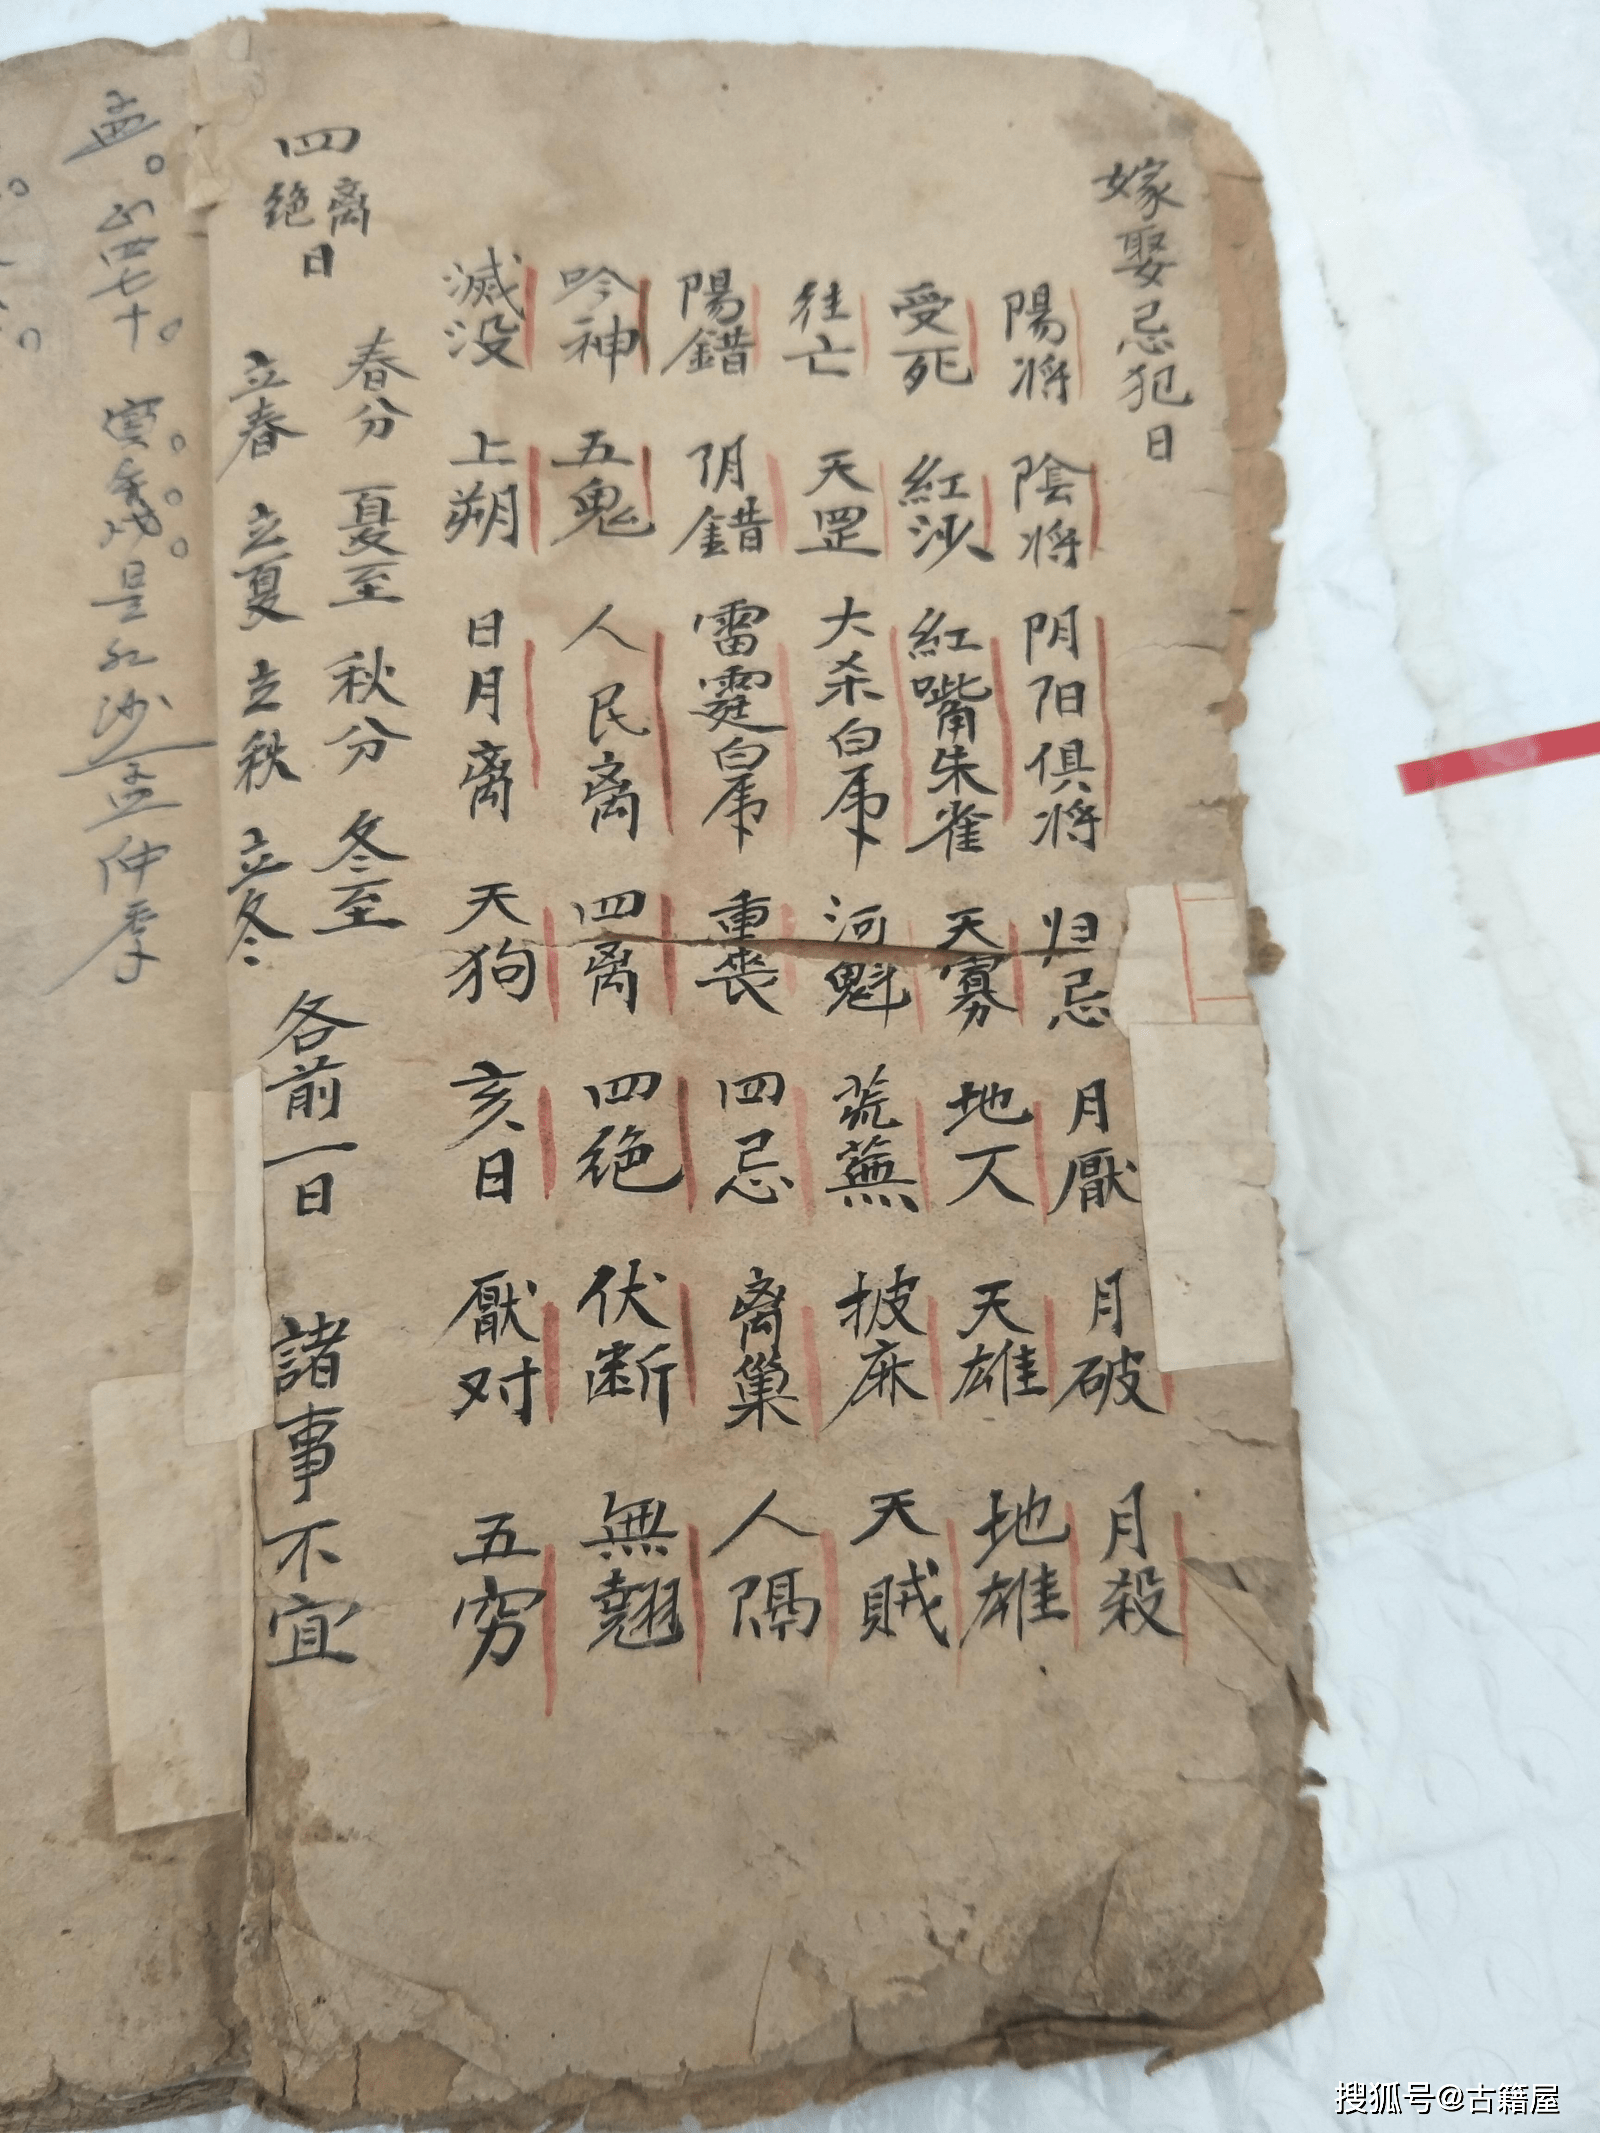 嫁娶忌犯日
陽将 陰将 阴阳俱将 归忌 月厭 月破 月殺
受死 紅沙 紅嘴朱雀 天寡 地 天雄 地雄
往亡 天罡 大杀白虎 河魁 荒蕪 披麻 天賊
陽錯 阴錯 雷霆白虎 重喪 四忌 离巢 人隔
吟神 五鬼 人民离 四离 四绝 伏断 無翹
滅没 上朔 日月离 天狗 亥日 厭对 五穷
四离绝日
春分 夏至 秋分 冬至
立春 立夏 立秋 立冬
各前一日 諸事不宜
孟。 四七十。 是红沙 孟仲季
搜狐号@古籍屋